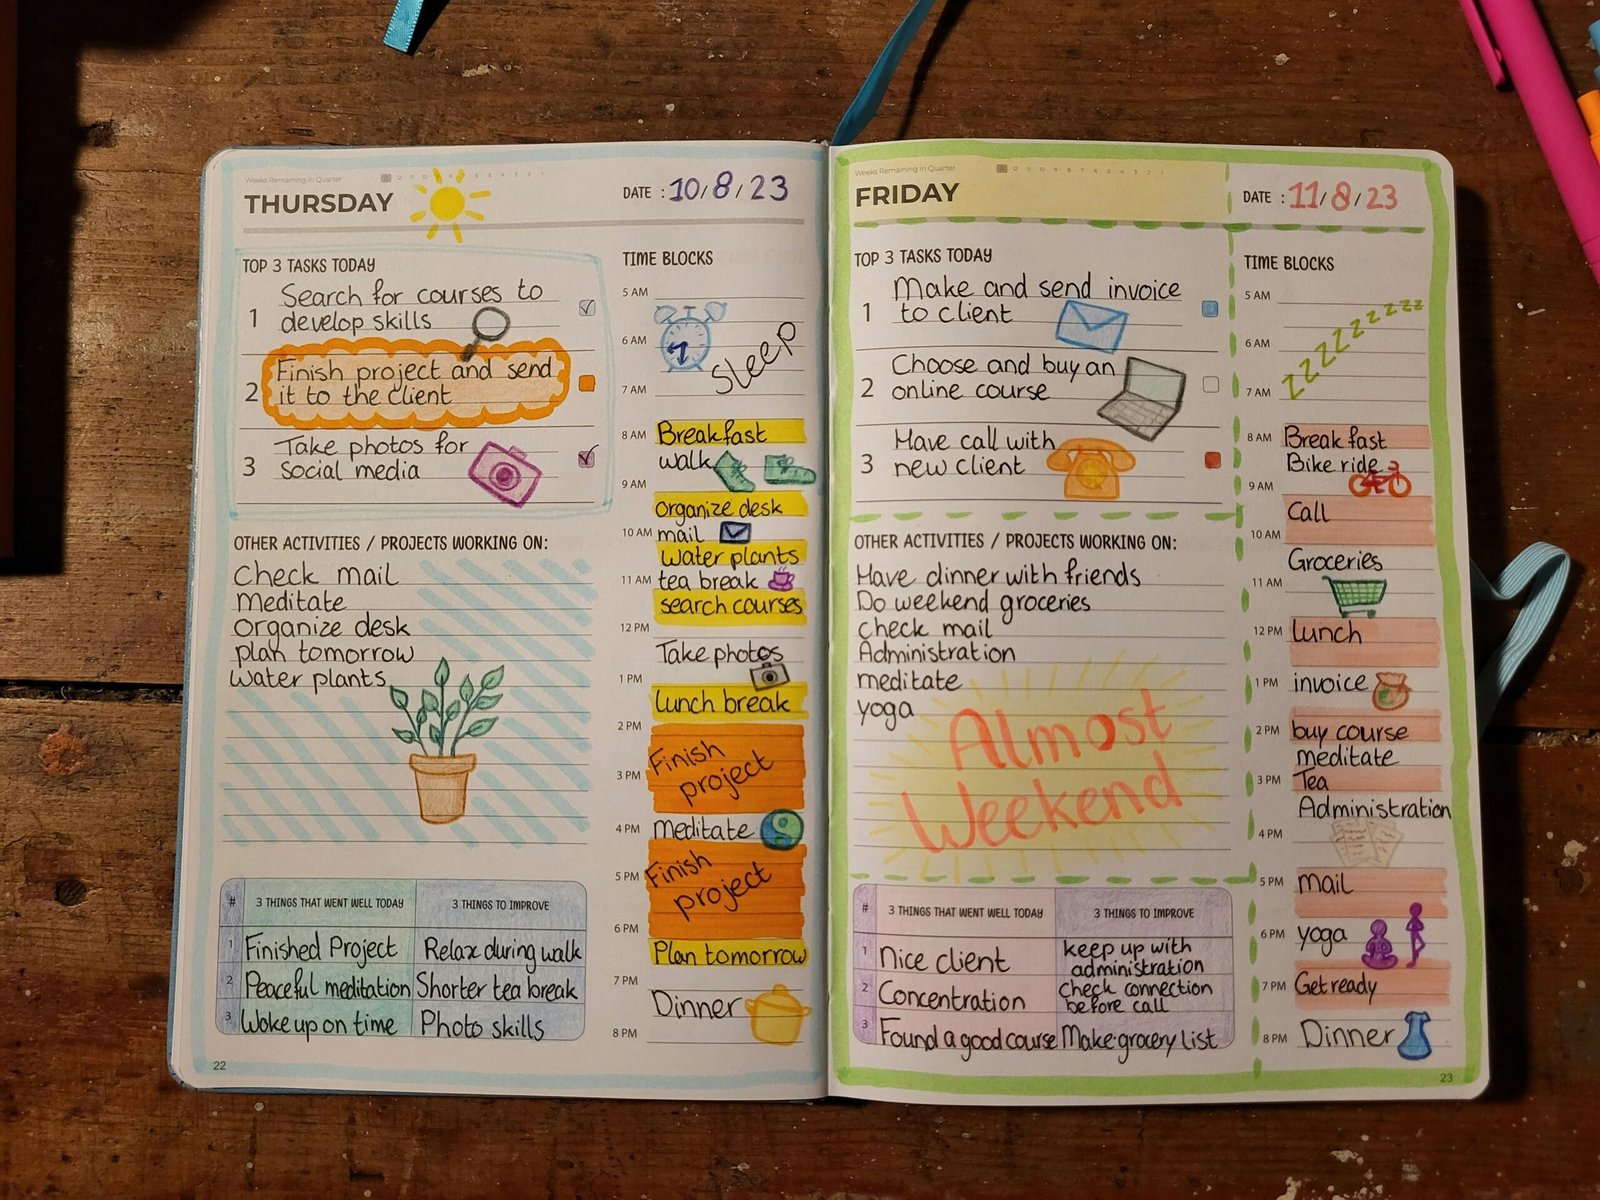 Weeks Remaining in Quarter
THURSDAY
DATE : 10/8/23
TOP 3 TASKS TODAY
1 Search for courses to
develop skills
2 Finish project and send
it to the client
3 Take photos for
social media
OTHER ACTIVITIES / PROJECTS WORKING ON:
Check mail
Meditate
Organize desk
plan tomorrow
Water plants
# 3 THINGS THAT WENT WELL TODAY 3 THINGS TO IMPROVE
1 Finished Project Relax during walk
2 Peaceful meditation Shorter tea break
3 Woke up on time Photo skills
22
TIME BLOCKS
5 AM
6 AM Sleep
7 AM
8 AM Breakfast
walk
9 AM
organize desk
10 AM mail
Water plants
11 AM tea break
search courses
12 PM
Take photos
1 PM
Lunch break
2 PM
Finish
3 PM project
4 PM Meditate
5 PM Finish
project
6 PM
Plan tomorrow
7 PM
Dinner
8 PM
Weeks Remaining in Quarter
FRIDAY
DATE : 11/8/23
TOP 3 TASKS TODAY
1 Make and send invoice
to client
2 Choose and buy an
online course
3 Have call with
new client
OTHER ACTIVITIES / PROJECTS WORKING ON:
Have dinner with friends
Do weekend groceries
check mail
Administration
meditate
yoga
Almost
Weekend
# 3 THINGS THAT WENT WELL TODAY 3 THINGS TO IMPROVE
1 Nice client keep up with
administration
2 Concentration check connection
before call
3 Found a good course Make grocery list
TIME BLOCKS
5 AM
6 AM zzzzzzzzzz
7 AM
8 AM Breakfast
Bike ride
9 AM
Call
10 AM
Groceries
11 AM
12 PM lunch
1 PM invoice
2 PM buy course
meditate
3 PM Tea
Administration
4 PM
5 PM mail
6 PM yoga
7 PM Get ready
8 PM Dinner
23